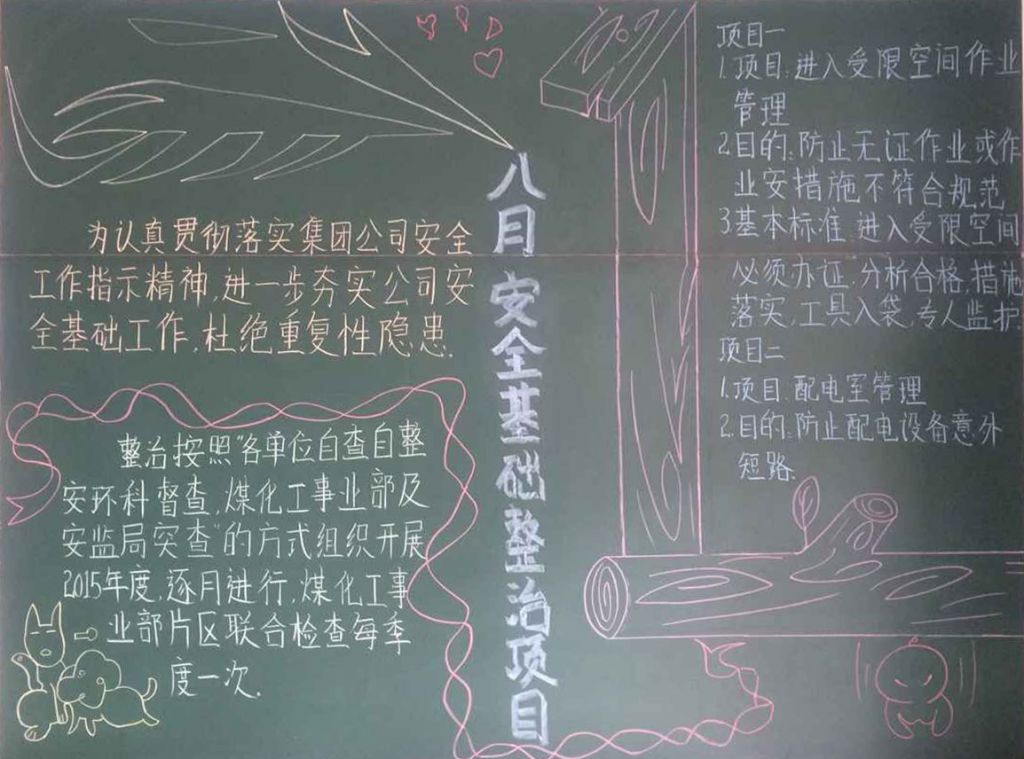 为认真贯彻落实集团公司安全
工作指示精神,进一步夯实公司安
全基础工作,杜绝重复性隐患.
整治按照"各单位自查自整
安环科督查,煤化工事业部及
安监局突查"的方式组织开展
2015年度,逐月进行,煤化工事
业部片区联合检查每季
度一次.
八月安全基础整治项目
项目一
1.项目:进入受限空间作业
管理
2.目的:防止无证作业或作
业安措施不符合规范
3.基本标准:进入受限空间
必须办证,分析合格,措施
落实,工具入袋,专人监护.
项目二
1.项目:配电室管理
2.目的:防止配电设备意外
短路.